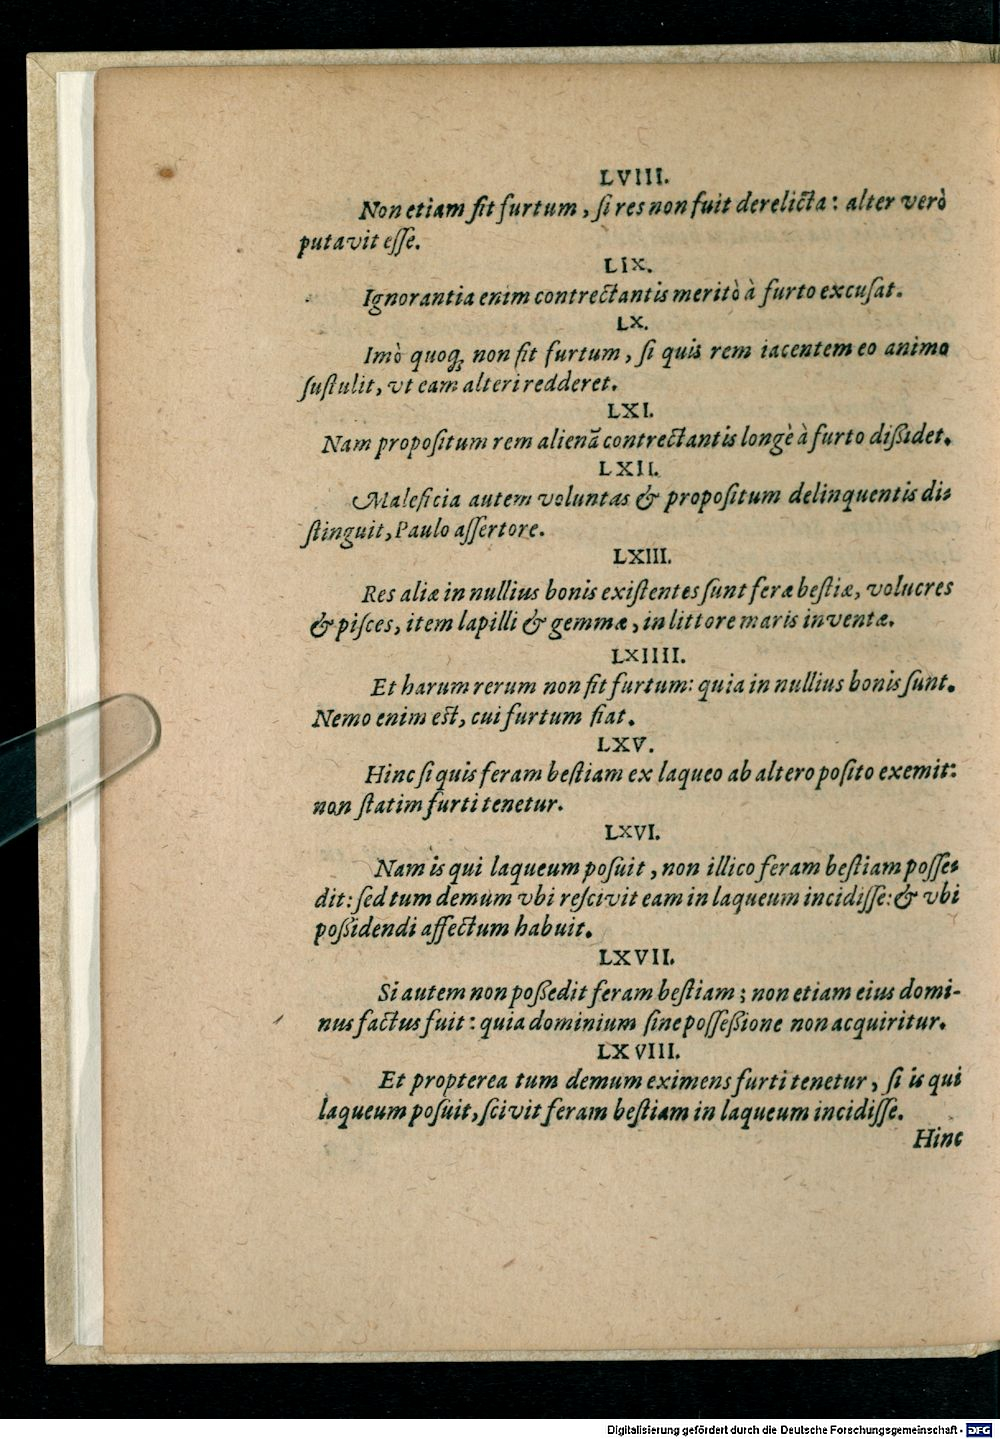 LVIII.
Non etiam fit furtum, ſi res non fuit derelicta: alter verò
putavit eſſe.
LIX.
Ignorantia enim contrectantis meritò à furto excuſat.
LX.
Imò quoq; non fit furtum, ſi quis rem iacentem eo animo
ſuſtulit, vt eam alteri redderet.
LXI.
Nam propoſitum rem alienã contrectantis longè à furto dißidet.
LXII.
Maleficia autem voluntas & propoſitum delinquentis di-
ſtinguit, Paulo aſſertore.
LXIII.
Res aliæ in nullius bonis exiſtentes ſunt feræ beſtiæ, volucres
& piſces, item lapilli & gemmæ, in littore maris inventæ.
LXIIII.
Et harum rerum non fit furtum: quia in nullius bonis ſunt.
Nemo enim eſt, cui furtum fiat.
LXV.
Hinc ſi quis feram beſtiam ex laqueo ab altero poſito exemit:
non ſtatim furti tenetur.
LXVI.
Nam is qui laqueum poſuit, non illico feram beſtiam poſſe-
dit: ſed tum demum vbi reſcivit eam in laqueum incidiſſe: & vbi
poßidendi affectum habuit.
LXVII.
Si autem non poßedit feram beſtiam; non etiam eius domi-
nus factus fuit: quia dominium ſine poſſeßione non acquiritur.
LXVIII.
Et propterea tum demum eximens furti tenetur, ſi is qui
laqueum poſuit, ſcivit feram beſtiam in laqueum incidiſſe.
Hinc
Digitalisierung gefördert durch die Deutsche Forschungsgemeinschaft - DFG